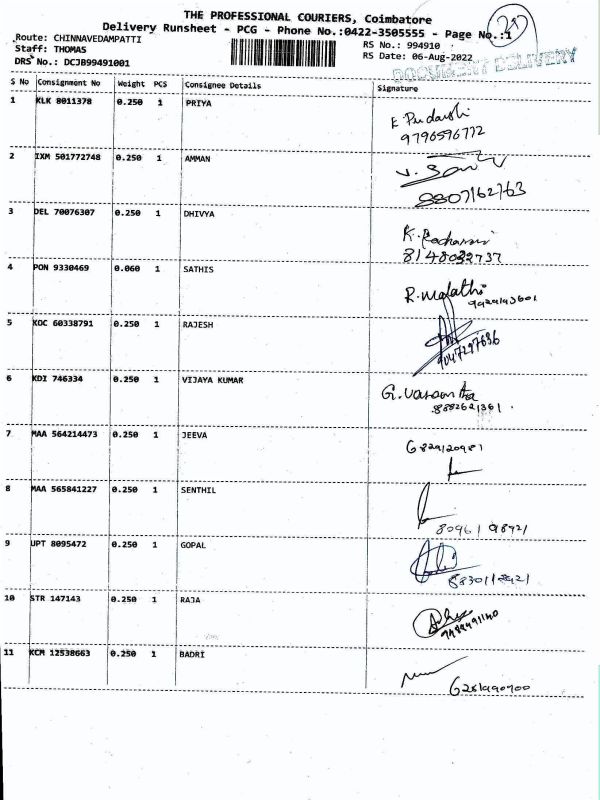 THE PROFESSIONAL COURIERS, Coimbatore
Delivery Runsheet - PCG - Phone No.:0422-3505555 - Page No.:1
Route: CHINNAVEDAMPATTI RS No.: 994910
Staff: THOMAS RS Date: 06-Aug-2022
DRS No.: DCJB99491001 DOCUMENT DELIVERY
S No Consignment No Weight PCS Consignee Details Signature
1 KLK 8011378 0.250 1 PRIYA
9796596772
2 IXM 501772748 0.250 1 AMMAN
8807162763
3 DEL 70076307 0.250 1 DHIVYA
4 PON 9330469 0.060 1 SATHIS
R. Malathi
5 KOC 60338791 0.250 1 RAJESH
6 KDI 746334 0.250 1 VIJAYA KUMAR
8882621361
7 MAA 564214473 0.250 1 JEEVA
6829120981
8 MAA 565841227 0.250 1 SENTHIL
9 UPT 8095472 0.250 1 GOPAL
10 STR 147143 0.250 1 RAJA
11 KCM 12538663 0.250 1 BADRI